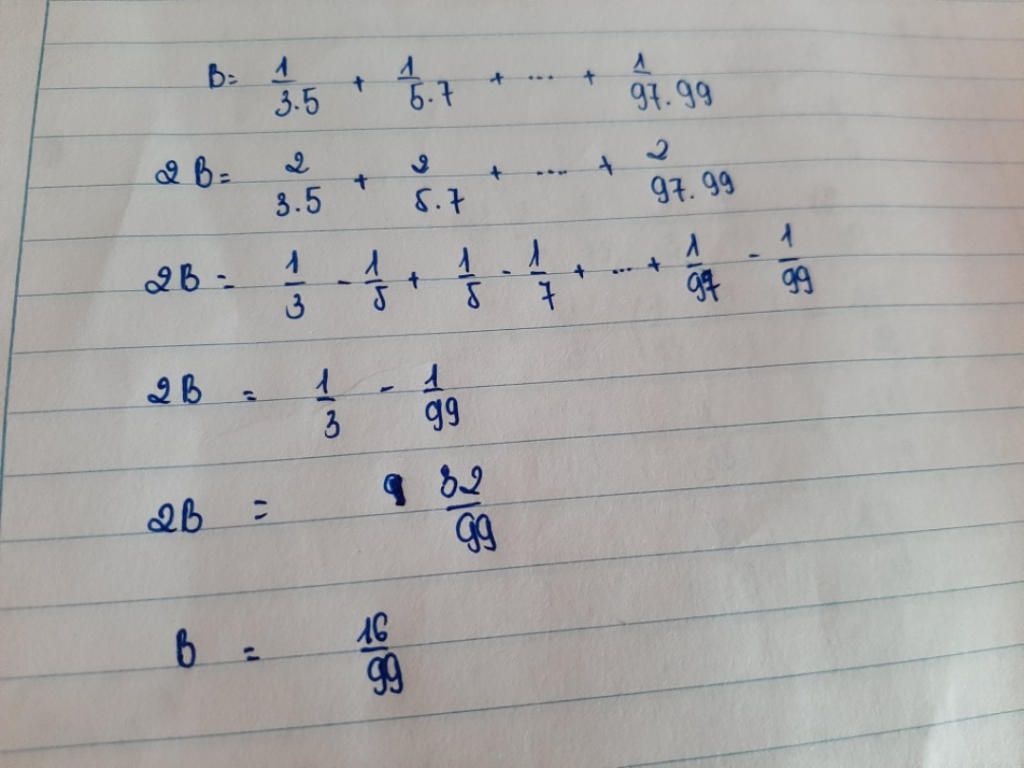 B = 1/3.5 + 1/5.7 + ... + 1/97.99
2B = 2/3.5 + 2/5.7 + .... + 2/97.99
2B = 1/3 - 1/5 + 1/5 - 1/7 + ... + 1/97 - 1/99
2B = 1/3 - 1/99
2B = 32/99
B = 16/99